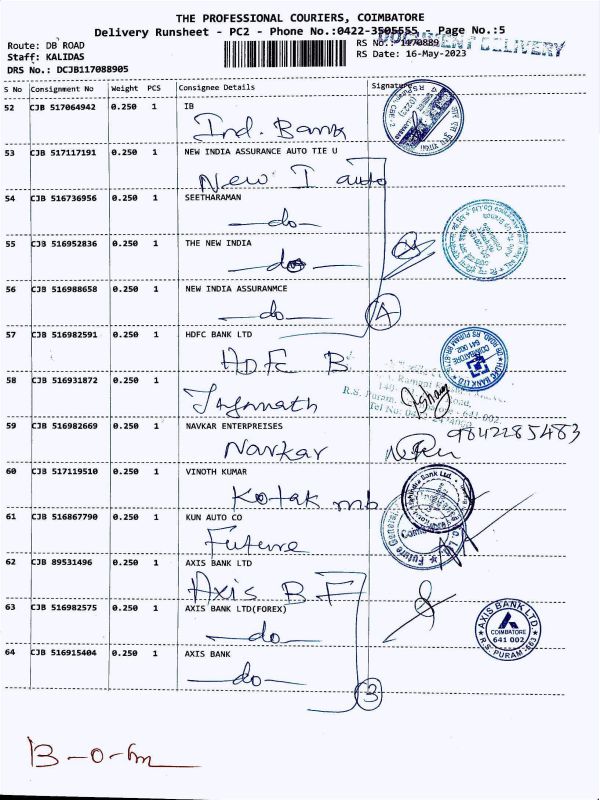 THE PROFESSIONAL COURIERS, COIMBATORE
Delivery Runsheet - PC2 - Phone No.:0422-3505555 Page No.:5
DOCUMENT DELIVERY
Route: DB ROAD RS No.: 1170889
Staff: KALIDAS RS Date: 16-May-2023
DRS No.: DCJB117088905
S No Consignment No Weight PCS Consignee Details Signature
52 CJB 517064942 0.250 1 IB
Ind. Bank
53 CJB 517117191 0.250 1 NEW INDIA ASSURANCE AUTO TIE U
New I auto
54 CJB 516736956 0.250 1 SEETHARAMAN
—do—
55 CJB 516952836 0.250 1 THE NEW INDIA
—do—
56 CJB 516988658 0.250 1 NEW INDIA ASSURANMCE
—do— 4
57 CJB 516982591 0.250 1 HDFC BANK LTD
HDFC B
HDFC BANK LTD
COIMBATORE
641 002
58 CJB 516931872 0.250 1
Jagannath
R.S. Puram, 641 002.
59 CJB 516982669 0.250 1 NAVKAR ENTERPREISES
Navkar 9842285483
60 CJB 517119510 0.250 1 VINOTH KUMAR
Kotak mb
61 CJB 516867790 0.250 1 KUN AUTO CO
Future
62 CJB 89531496 0.250 1 AXIS BANK LTD
Axis B F
63 CJB 516982575 0.250 1 AXIS BANK LTD(FOREX)
—do—
AXIS BANK LTD.
COIMBATORE
641 002
R.S. PURAM-663
64 CJB 516915404 0.250 1 AXIS BANK
—do— 3
13-0-6m